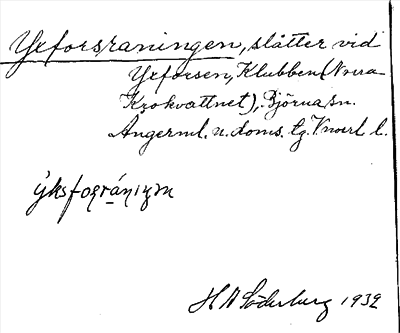 Yxforsraningen, slåtter vid
Yxforsen, Klubben (Norra
Krokvattnet), Björna sn.
Ångerml. n. doms. tg. Vnorrl l.
H A Söderberg 1932